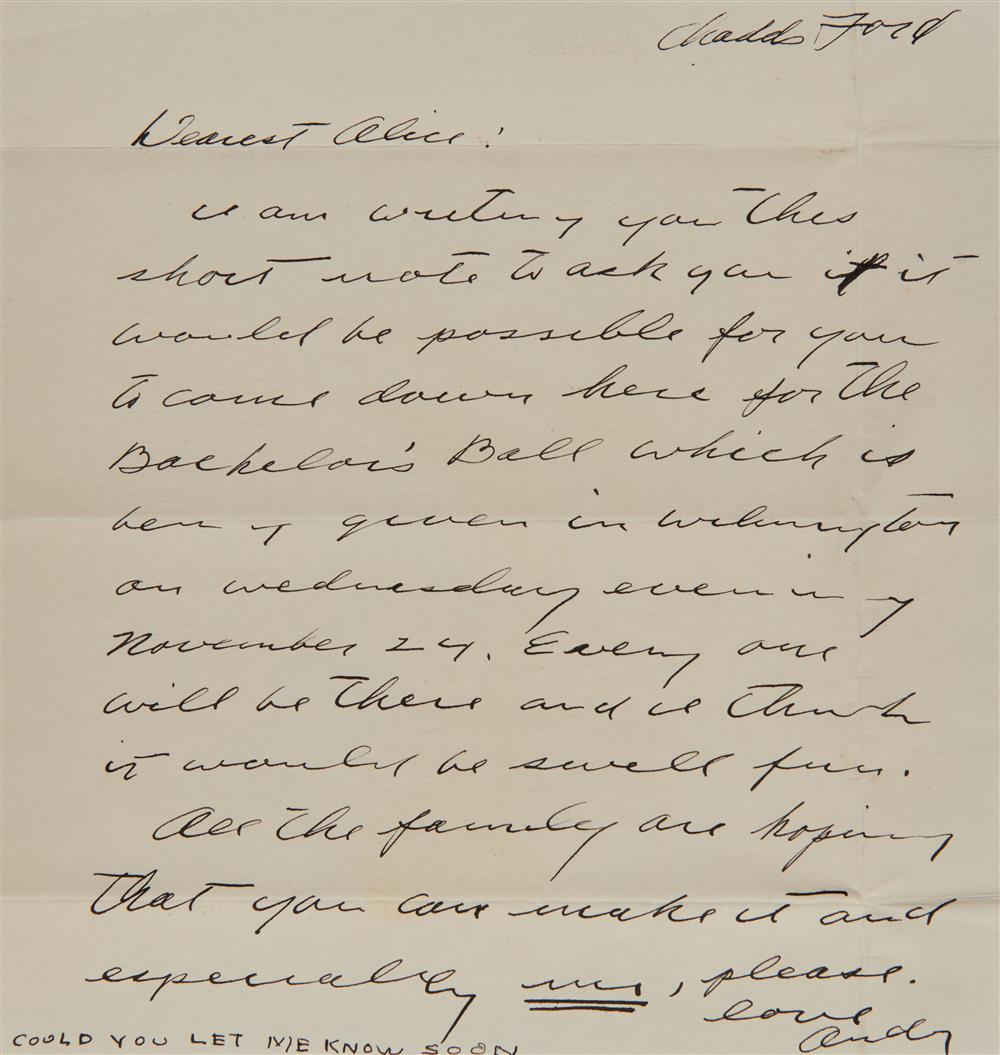 Chadds Ford
Dearest Alice:
I am writing you this
short note to ask you if it
would be possible for you
to come down here for the
Bachelor's Ball which is
being given in Wilmington
on wednesday evening
November 24. Every one
will be there and I think
it would be swell fun.
All the family are hoping
that you can make it and
especially me, please.
love
Andy
COULD YOU LET ME KNOW SOON